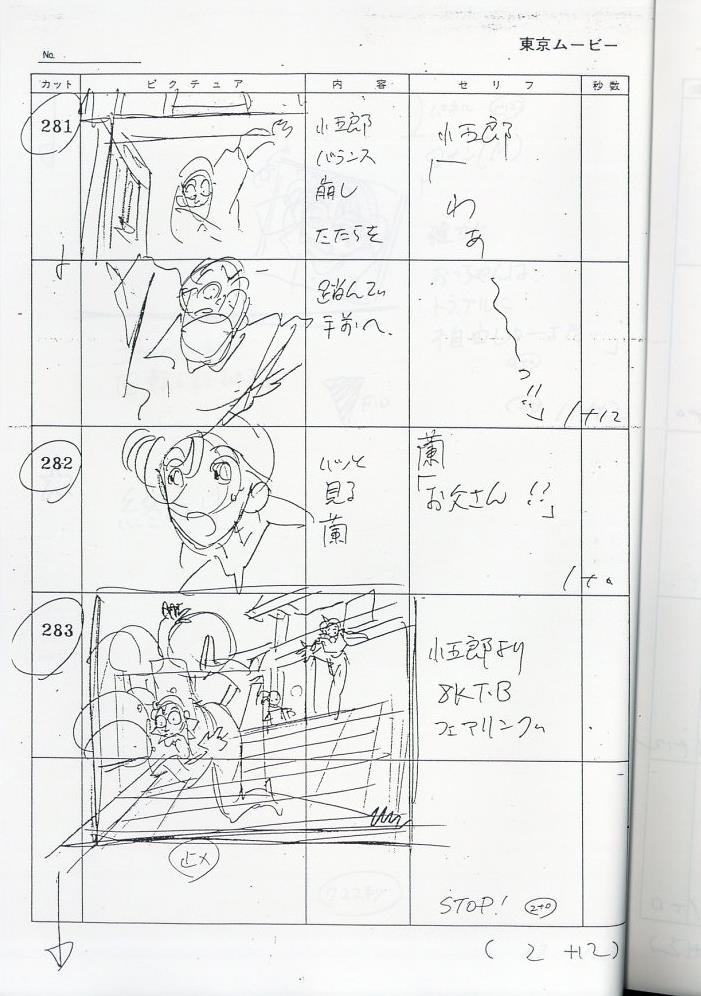 東京ムービー
No.
カット ピクチュア 内容 セリフ 秒数
281
小五郎
バランス
崩し
たたらを
小五郎
「わ
あ
踏んで
手前へ
っ!!」
1+12
282
ハッと
見る
蘭
蘭
「お父さん!?」
1+0
283
小五郎より
8KT.B
フェアリング
止メ
STOP! 2+0
(2+12)